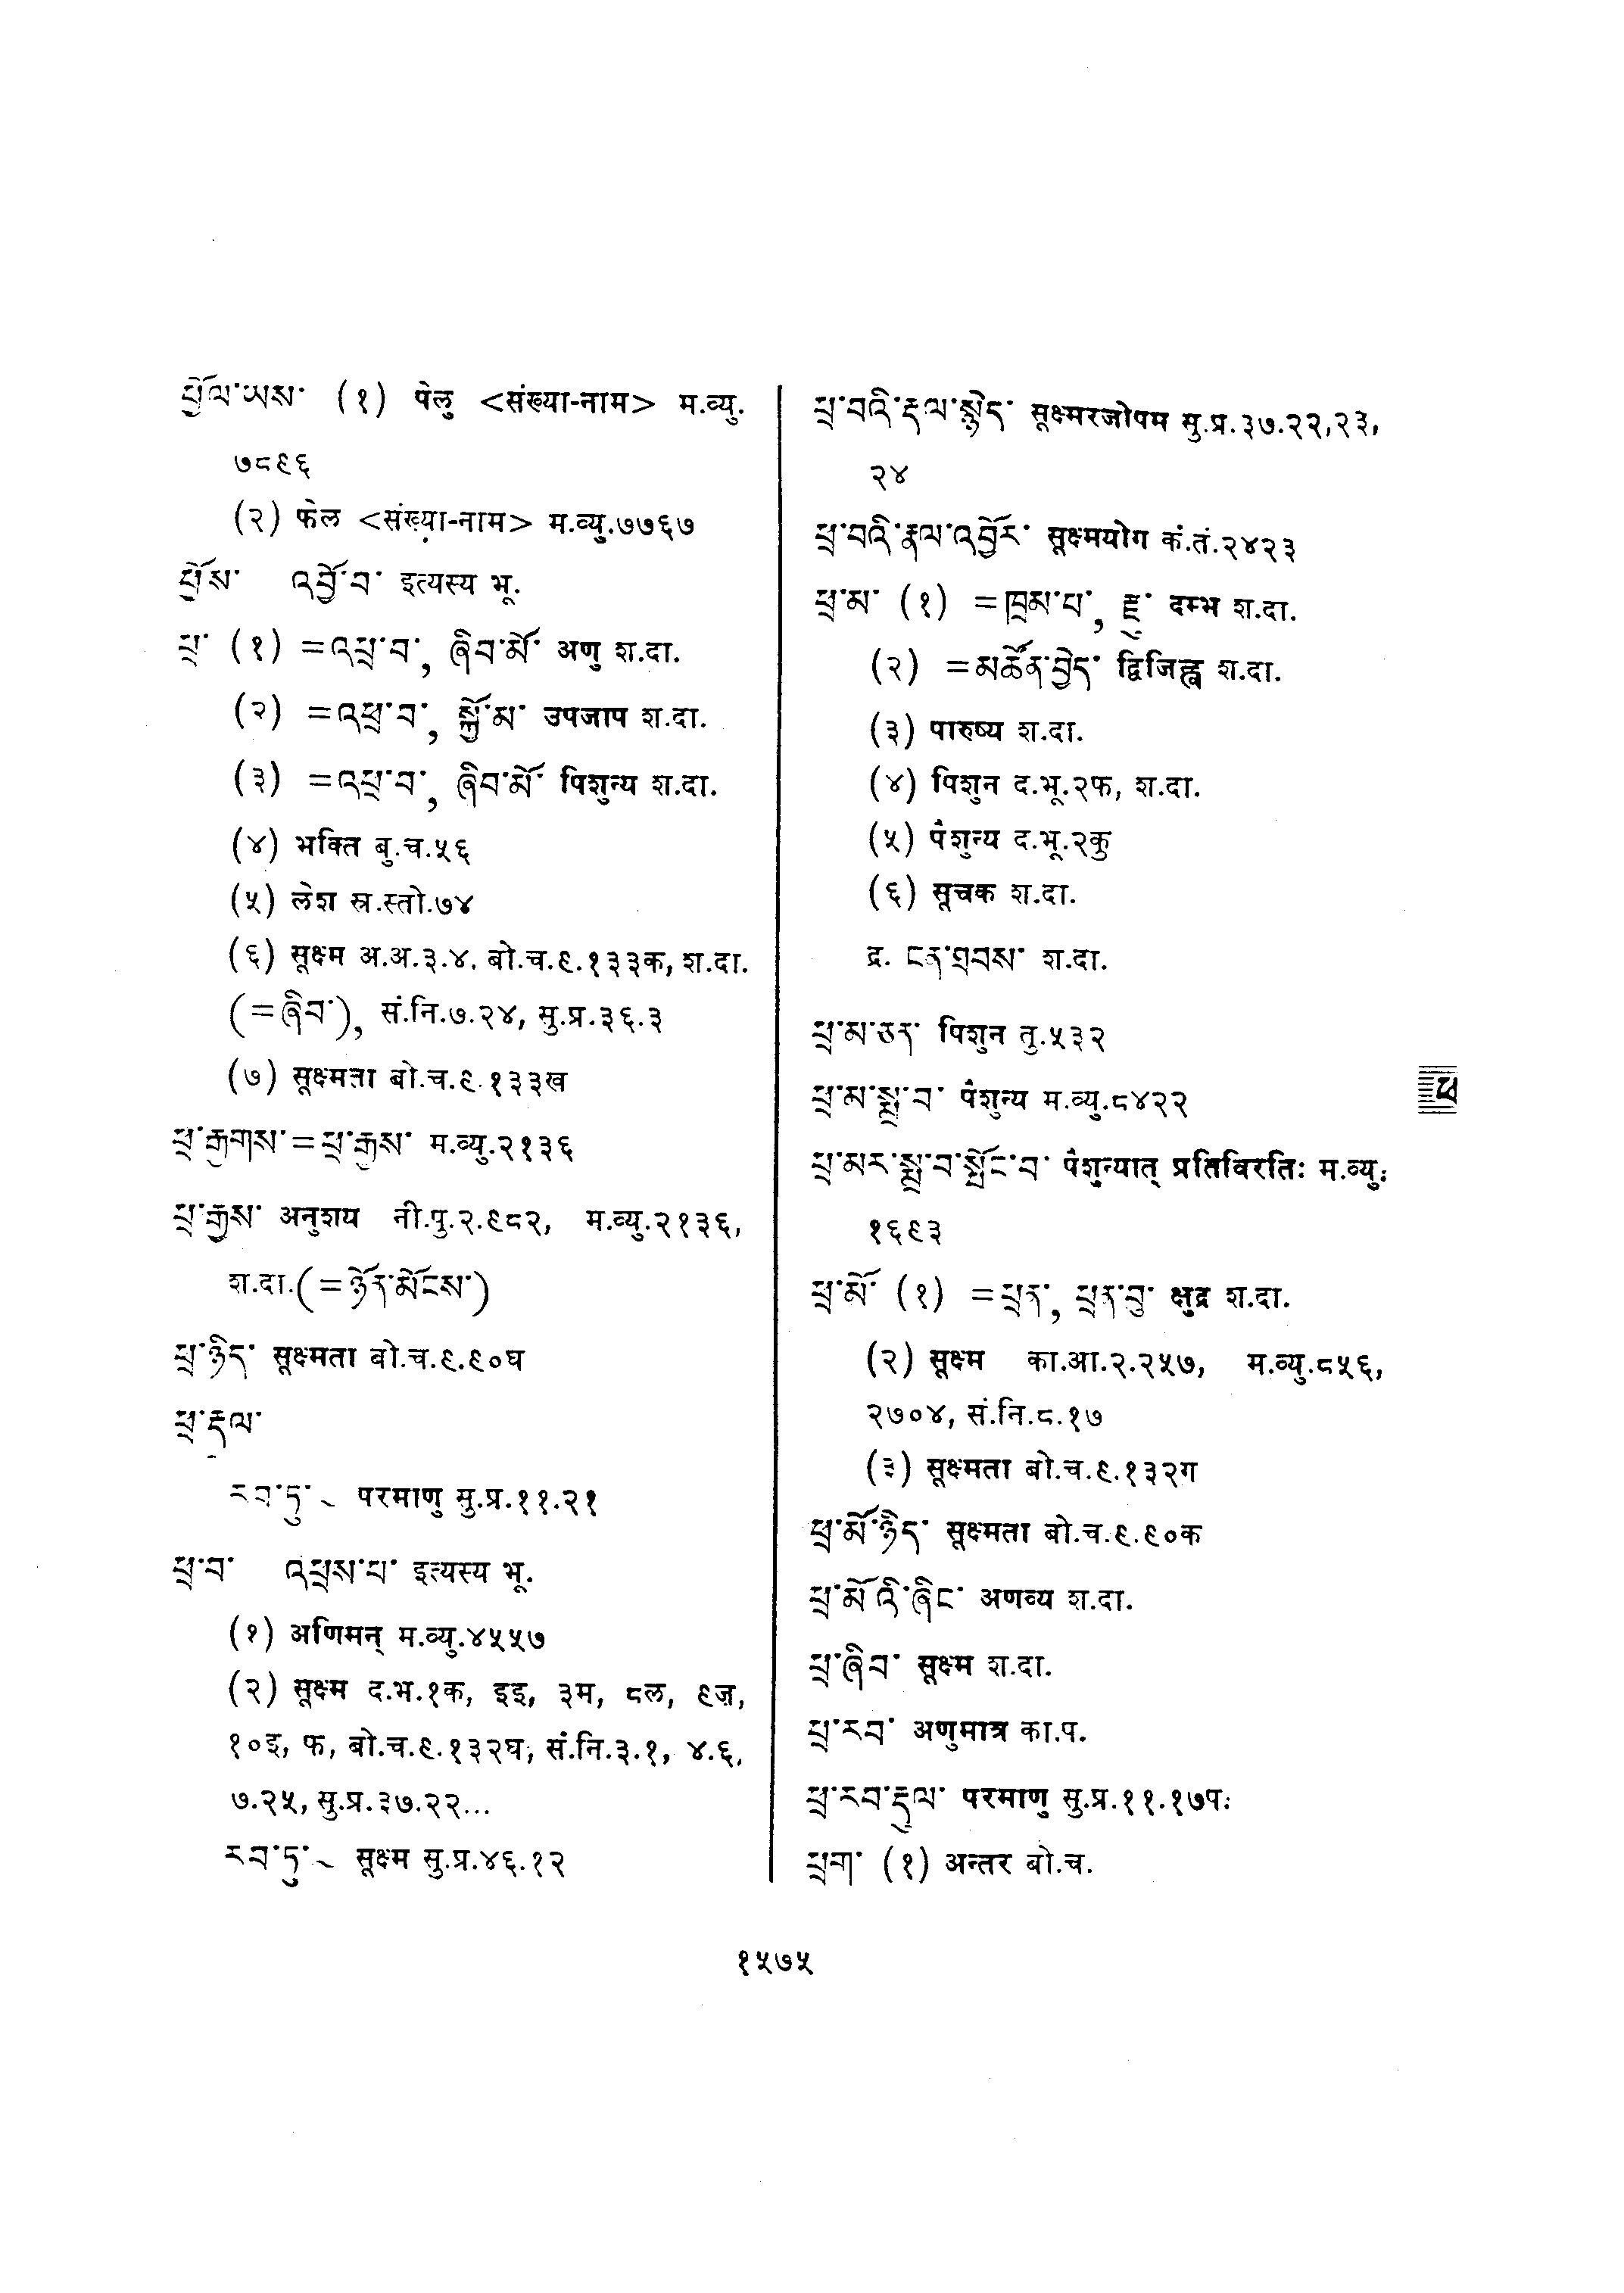 ཕྱོལ་ཡས་ (१) पेलु <संख्या-नाम> म.व्यु.
७८९६
(२) फेल <संख्या-नाम> म.व्यु.७७६७
ཕྱོས་ འཕྱོ་བ་ इत्यस्य भू.
ཕྲ་ (१) =འཕྲ་བ་, ཞིབ་མོ་ अणु श.दा.
(२) =འཕྲ་བ་, སྐྱོ་མ་ उपजाप श.दा.
(३) =འཕྲ་བ་, ཞིབ་མོ་ पिशुन्य श.दा.
(४) भक्ति बु.च.५६
(५) लेश स्र.स्तो.७४
(६) सूक्ष्म अ.अ.३.४. बो.च.९.१३३क, श.दा.
(=ཞིབ་), सं.नि.७.२४, सु.प्र.३६.३
(७) सूक्ष्मता बो.च.९.१३३ख
ཕྲ་རྒྱགས་=ཕྲ་རྒྱས་ म.व्यु.२१३६
ཕྲ་རྒྱས་ अनुशय नी.पु.२.९८२, म.व्यु.२१३६,
श.दा.(=ཉོན་མོངས་)
ཕྲ་ཉིད་ सूक्ष्मता बो.च.९.९०घ
ཕྲ་རྡལ་
རབ་ཏུ་~ परमाणु सु.प्र.११.२१
ཕྲ་བ་ འཕྲས་པ་ इत्यस्य भू.
(१) अणिमन् म.व्यु.४५५७
(२) सूक्ष्म द.भ.१क, इइ, ३म, ८ल, ९ज,
१०इ, फ, बो.च.९.१३२घ, सं.नि.३.१, ४.६,
७.२५, सु.प्र.३७.२२...
རབ་ཏུ་~ सूक्ष्म सु.प्र.४६.१२
ཕྲ་བའི་རྡལ་སྙེད་ सूक्ष्मरजोपम सु.प्र.३७.२२,२३,
२४
ཕྲ་བའི་རྣལ་འབྱོར་ सूक्ष्मयोग कं.तं.२४२३
ཕྲ་མ་ (१) =ཁྲམ་པ་, རྫུ་ दम्भ श.दा.
(२) =མཚོན་བྱེད་ द्विजिह्व श.दा.
(३) पारुष्य श.दा.
(४) पिशुन द.भू.२फ, श.दा.
(५) पैशुन्य द.भू.२कु
(६) सूचक श.दा.
द्र. ངན་གྲབས་ श.दा.
ཕྲ་མ་ཅན་ पिशुन तु.५३२
ཕྲ་མ་སྨྲ་བ་ पैशुन्य म.व्यु.८४२२
ཕྲ་མར་སྨྲ་བ་སྤོང་བ་ पैशुन्यात् प्रतिविरतिः म.व्यु.
१६९३
ཕྲ་མོ་ (१) =ཕྲན་, ཕྲན་བུ་ क्षुद्र श.दा.
(२) सूक्ष्म का.आ.२.२५७, म.व्यु.८५६,
२७०४, सं.नि.८.१७
(३) सूक्ष्मता बो.च.९.१३२ग
ཕྲ་མོ་ཉིད་ सूक्ष्मता बो.च.९.९०क
ཕྲ་མོའི་ཞིང་ अणव्य श.दा.
ཕྲ་ཞིབ་ सूक्ष्म श.दा.
ཕྲ་རབ་ अणुमात्र का.प.
ཕྲ་རབ་རྡུལ་ परमाणु सु.प्र.११.१७प:
ཕྲག་ (१) अन्तर बो.च.
ཕ
१५७५